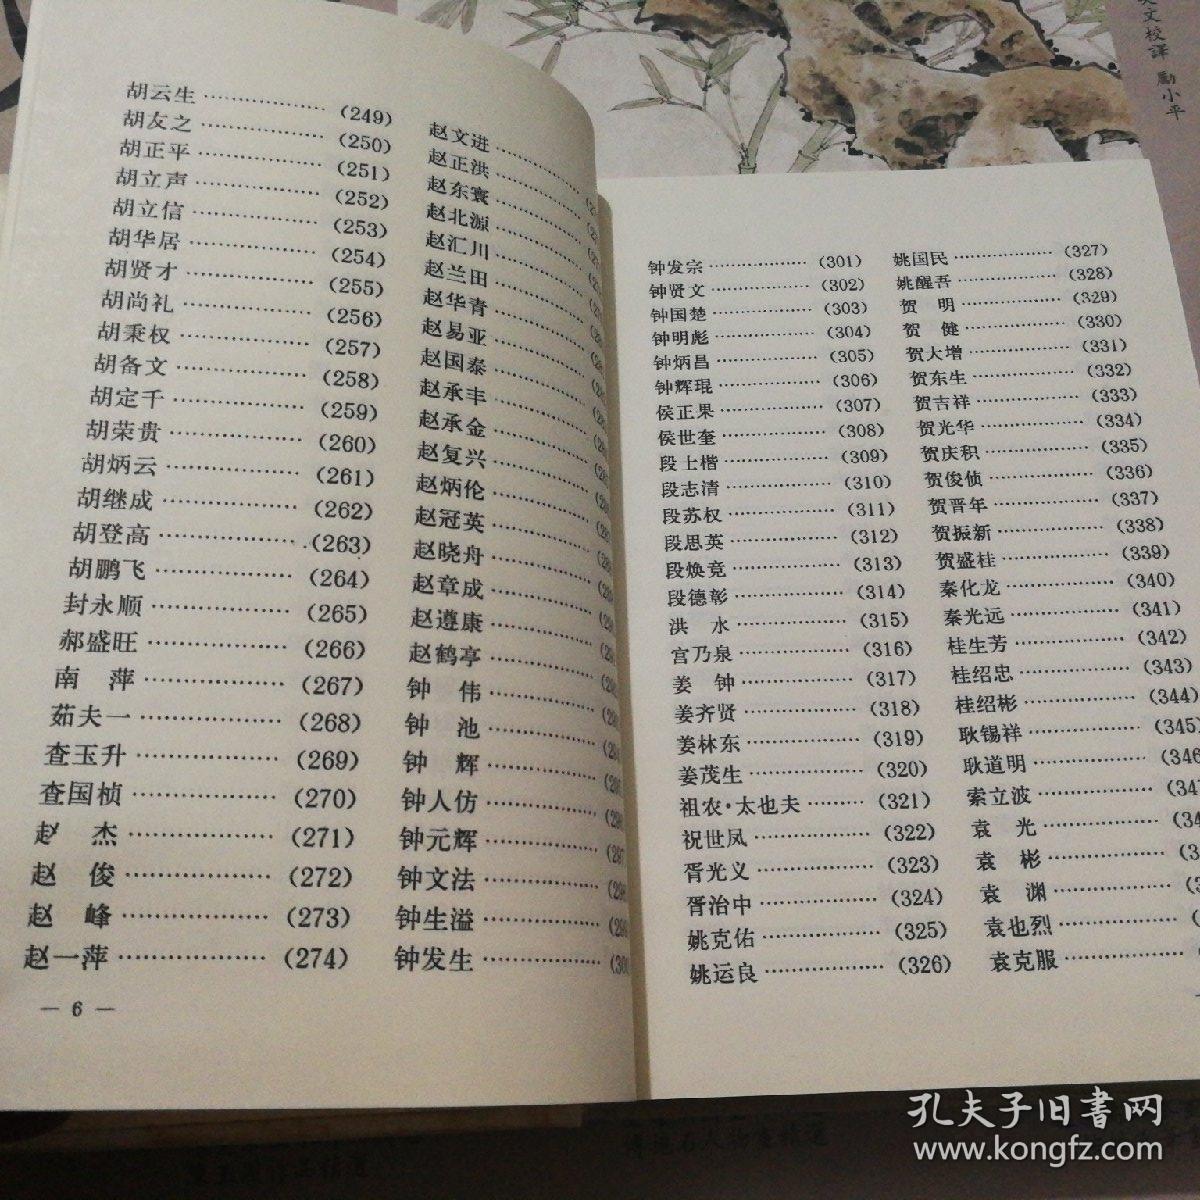 胡云生 (249)
胡友之 (250)
胡正平 (251)
胡立声 (252)
胡立信 (253)
胡华居 (254)
胡贤才 (255)
胡尚礼 (256)
胡秉权 (257)
胡备文 (258)
胡定千 (259)
胡荣贵 (260)
胡炳云 (261)
胡继成 (262)
胡登高 (263)
胡鹏飞 (264)
封永顺 (265)
郝盛旺 (266)
南 萍 (267)
茹夫一 (268)
查玉升 (269)
查国桢 (270)
赵 杰 (271)
赵 俊 (272)
赵 峰 (273)
赵一萍 (274)
赵文进
赵正洪
赵东寰
赵北源
赵汇川
赵兰田
赵华青
赵易亚
赵国泰
赵承丰
赵承金
赵复兴
赵炳伦
赵冠英
赵晓舟
赵章成
赵遵康
赵鹤亭
钟 伟
钟 池
钟 辉
钟人仿
钟元辉
钟文法
钟生溢
钟发生
— 6 —
钟发宗 (301)
钟贤文 (302)
钟国楚 (303)
钟明彪 (304)
钟炳昌 (305)
钟辉琨 (306)
侯正果 (307)
侯世奎 (308)
段士楷 (309)
段志清 (310)
段苏权 (311)
段思英 (312)
段焕竞 (313)
段德彰 (314)
洪 水 (315)
宫乃泉 (316)
姜 钟 (317)
姜齐贤 (318)
姜林东 (319)
姜茂生 (320)
祖农·太也夫 (321)
祝世凤 (322)
胥光义 (323)
胥治中 (324)
姚克佑 (325)
姚运良 (326)
姚国民 (327)
姚醒吾 (328)
贺 明 (329)
贺 健 (330)
贺大增 (331)
贺东生 (332)
贺吉祥 (333)
贺光华 (334)
贺庆积 (335)
贺俊侦 (336)
贺晋年 (337)
贺振新 (338)
贺盛桂 (339)
秦化龙 (340)
秦光远 (341)
桂生芳 (342)
桂绍忠 (343)
桂绍彬 (344)
耿锡祥 (345)
耿道明 (346
索立波
袁 光
袁 彬
袁 渊
袁也烈
袁克服
文校译 励小平
孔夫子旧书网
www.kongfz.com